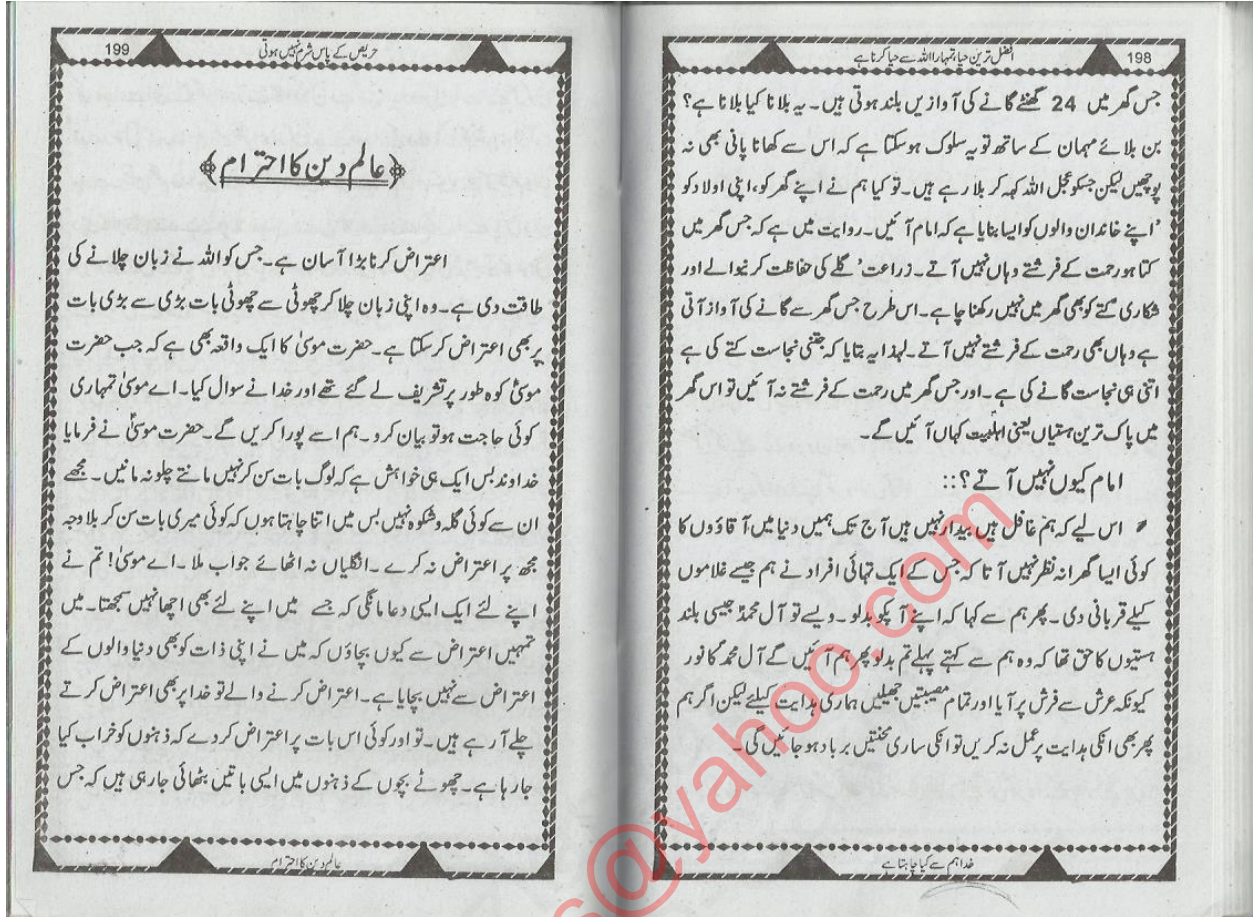 198
افضل ترین حیا، تمہارا اللہ سے حیا کرنا ہے
جس گھر میں 24 گھنٹے گانے کی آوازیں بلند ہوتی ہیں۔ یہ بلانا کیا بلانا ہے؟
بن بلائے مہمان کے ساتھ تو یہ سلوک ہوسکتا ہے کہ اس سے کھانا پانی بھی نہ
پوچھیں لیکن جسکو عجل اللہ کہہ کر بلا رہے ہیں۔ تو کیا ہم نے اپنے گھر کو، اپنی اولاد کو
'اپنے خاندان والوں کو ایسا بنایا ہے کہ امام آئیں۔ روایت میں ہے کہ جس گھر میں
کتا ہو رحمت کے فرشتے وہاں نہیں آتے۔ زراعت' گلے کی حفاظت کرنیوالے اور
شکاری کتے کو بھی گھر میں نہیں رکھنا چاہے۔ اس طرح جس گھر سے گانے کی آواز آتی
ہے وہاں بھی رحمت کے فرشتے نہیں آتے۔ لہذا یہ بتایا کہ جتنی نجاست کتے کی ہے
اتنی ہی نجاست گانے کی ہے۔ اور جس گھر میں رحمت کے فرشتے نہ آئیں تو اس گھر
میں پاک ترین ہستیاں یعنی اہلبیت کہاں آئیں گے۔
امام کیوں نہیں آتے؟::
اس لیے کہ ہم غافل ہیں بیدار نہیں ہیں آج تک ہمیں دنیا میں آقاؤں کا
کوئی ایسا گھرانہ نظر نہیں آتا کہ جس کے ایک تہائی افراد نے ہم جیسے غلاموں
کیلے قربانی دی۔ پھر ہم سے کہا کہ اپنے آپکو بدلو۔ ویسے تو آل محمدؐ جیسی بلند
ہستیوں کا حق تھا کہ وہ ہم سے کہتے پہلے تم بدلو پھر ہم آئیں گے آل محمدؐ کا نور
کیونکہ عرش سے فرش پر آیا اور تمام مصیبتیں جھیلیں ہماری ہدایت کیلئے لیکن اگر ہم
پھر بھی انکی ہدایت پر عمل نہ کریں تو انکی ساری محنتیں برباد ہو جائیں گی۔
خدا ہم سے کیا چاہتا ہے
199
حریص کے پاس شرم نہیں ہوتی
﴿عالم دین کا احترام﴾
اعتراض کرنا بڑا آسان ہے۔ جس کو اللہ نے زبان چلانے کی
طاقت دی ہے۔ وہ اپنی زبان چلا کر چھوٹی سے چھوٹی بات بڑی سے بڑی بات
پر بھی اعتراض کر سکتا ہے۔ حضرت موسیٰؑ کا ایک واقعہ بھی ہے کہ جب حضرت
موسیٰؑ کوہ طور پر تشریف لے گئے تھے اور خدا نے سوال کیا۔ اے موسیٰ تمہاری
کوئی حاجت ہو تو بیان کرو۔ ہم اسے پورا کریں گے۔ حضرت موسیٰؑ نے فرمایا
خداوند بس ایک ہی خواہش ہے کہ لوگ بات سن کر نہیں مانتے چلو نہ مانیں۔ مجھے
ان سے کوئی گلہ و شکوہ نہیں بس میں اتنا چاہتا ہوں کہ کوئی میری بات سن کر بلا وجہ
مجھ پر اعتراض نہ کرے۔ انگلیاں نہ اٹھائے جواب ملا۔ اے موسیٰ! تم نے
اپنے لئے ایک ایسی دعا مانگی کہ جسے میں اپنے لئے بھی اچھا نہیں سمجھتا۔ میں
تمہیں اعتراض سے کیوں بچاؤں کہ میں نے اپنی ذات کو بھی دنیا والوں کے
اعتراض سے نہیں بچایا ہے۔ اعتراض کرنے والے تو خدا پر بھی اعتراض کرتے
چلے آرہے ہیں۔ تو اور کوئی اس بات پر اعتراض کردے کہ ذہنوں کو خراب کیا
جا رہا ہے۔ چھوٹے بچوں کے ذہنوں میں ایسی باتیں بٹھائی جارہی ہیں کہ جس
عالم دین کا احترام
s@yahoo.com